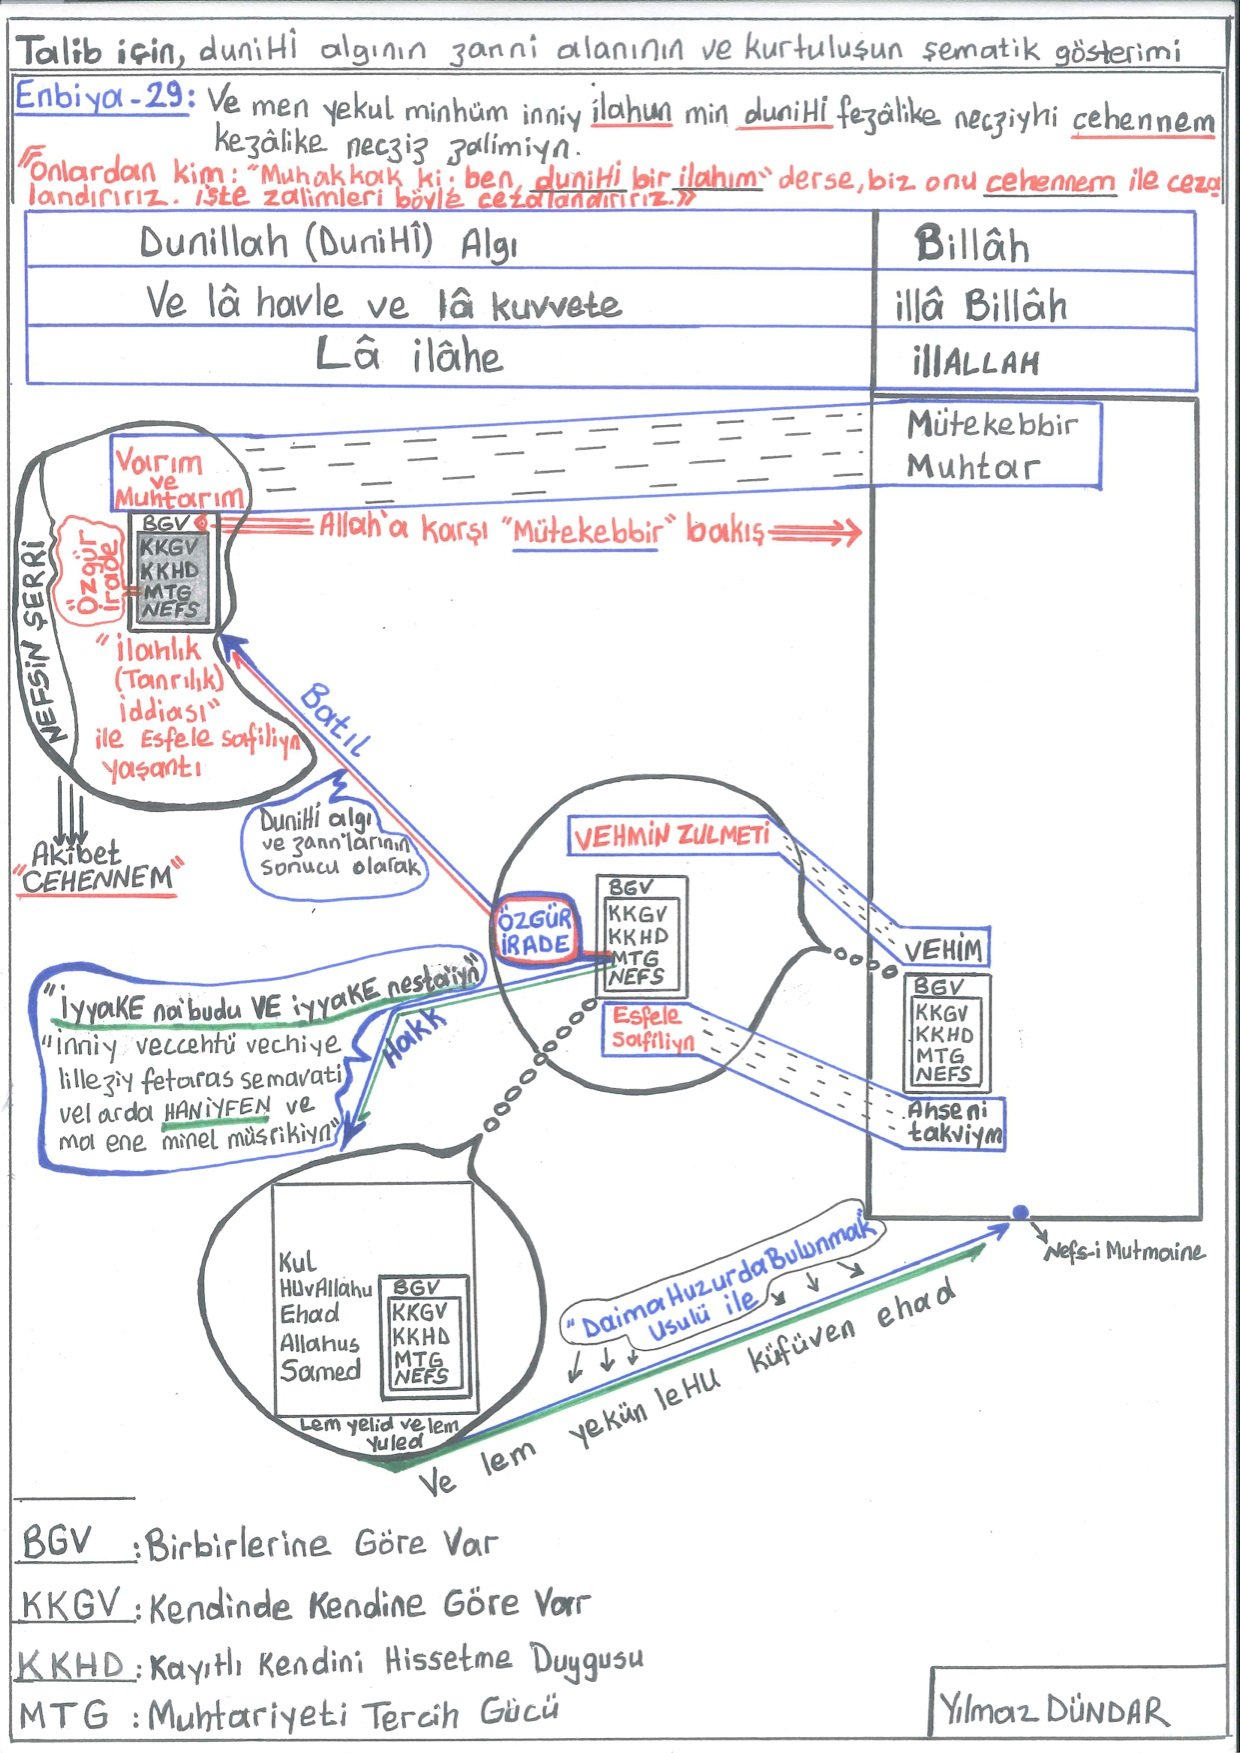 Talib için, duniHî algının zanni alanının ve kurtuluşun şematik gösterimi
Enbiya-29: Ve men yekul minhüm inniy ilahun min duniHî fezâlike necziyhi cehennem
kezâlike necziz zalimiyn.
"Onlardan kim: "Muhakkak ki; ben, duniHî bir ilahım" derse, biz onu cehennem ile ceza
landırırız. işte zalimleri böyle cezalandırırız.»
Dunillah (DuniHÎ) Algı
Billâh
Ve lâ havle ve lâ kuvvete
illâ Billâh
Lâ ilâhe
illALLAH
Mütekebbir
Muhtar
Varım
ve
Muhtarım
Allah'a karşı "Mütekebbir" bakış
BGV
KKGV
KKHD
MTG
NEFS
"Özgür
irade"
NEFSİN ŞERRİ
"ilahlık
(Tanrılık)
iddiası"
ile Esfele safiliyn
yaşantı
Akibet
"CEHENNEM"
Batıl
DuniHî algı
ve zann'larının
sonucu olarak
VEHMİN ZULMETİ
BGV
KKGV
KKHD
MTG
NEFS
ÖZGÜR
İRADE
Esfele
safiliyn
VEHİM
BGV
KKGV
KKHD
MTG
NEFS
Ahseni
takviym
Hakk
"iyyaKE na'budu VE iyyaKE nesta'iyn"
"inniy veccehtü vechiye
lilleziy fetaras semavati
vel arda HANİYFEN ve
ma ene minel müşrikiyn"
Kul
HüvAllahu
Ehad
Allahus
Samed
BGV
KKGV
KKHD
MTG
NEFS
Lem yelid ve lem
yuled
"Daima Huzurda Bulunmak"
Usulü ile
Ve lem yekün leHU küfüven ehad
Nefs-i Mutmaine
BGV : Birbirlerine Göre Var
KKGV : Kendinde Kendine Göre Var
KKHD : Kayıtlı Kendini Hissetme Duygusu
MTG : Muhtariyeti Tercih Gücü
Yılmaz DÜNDAR